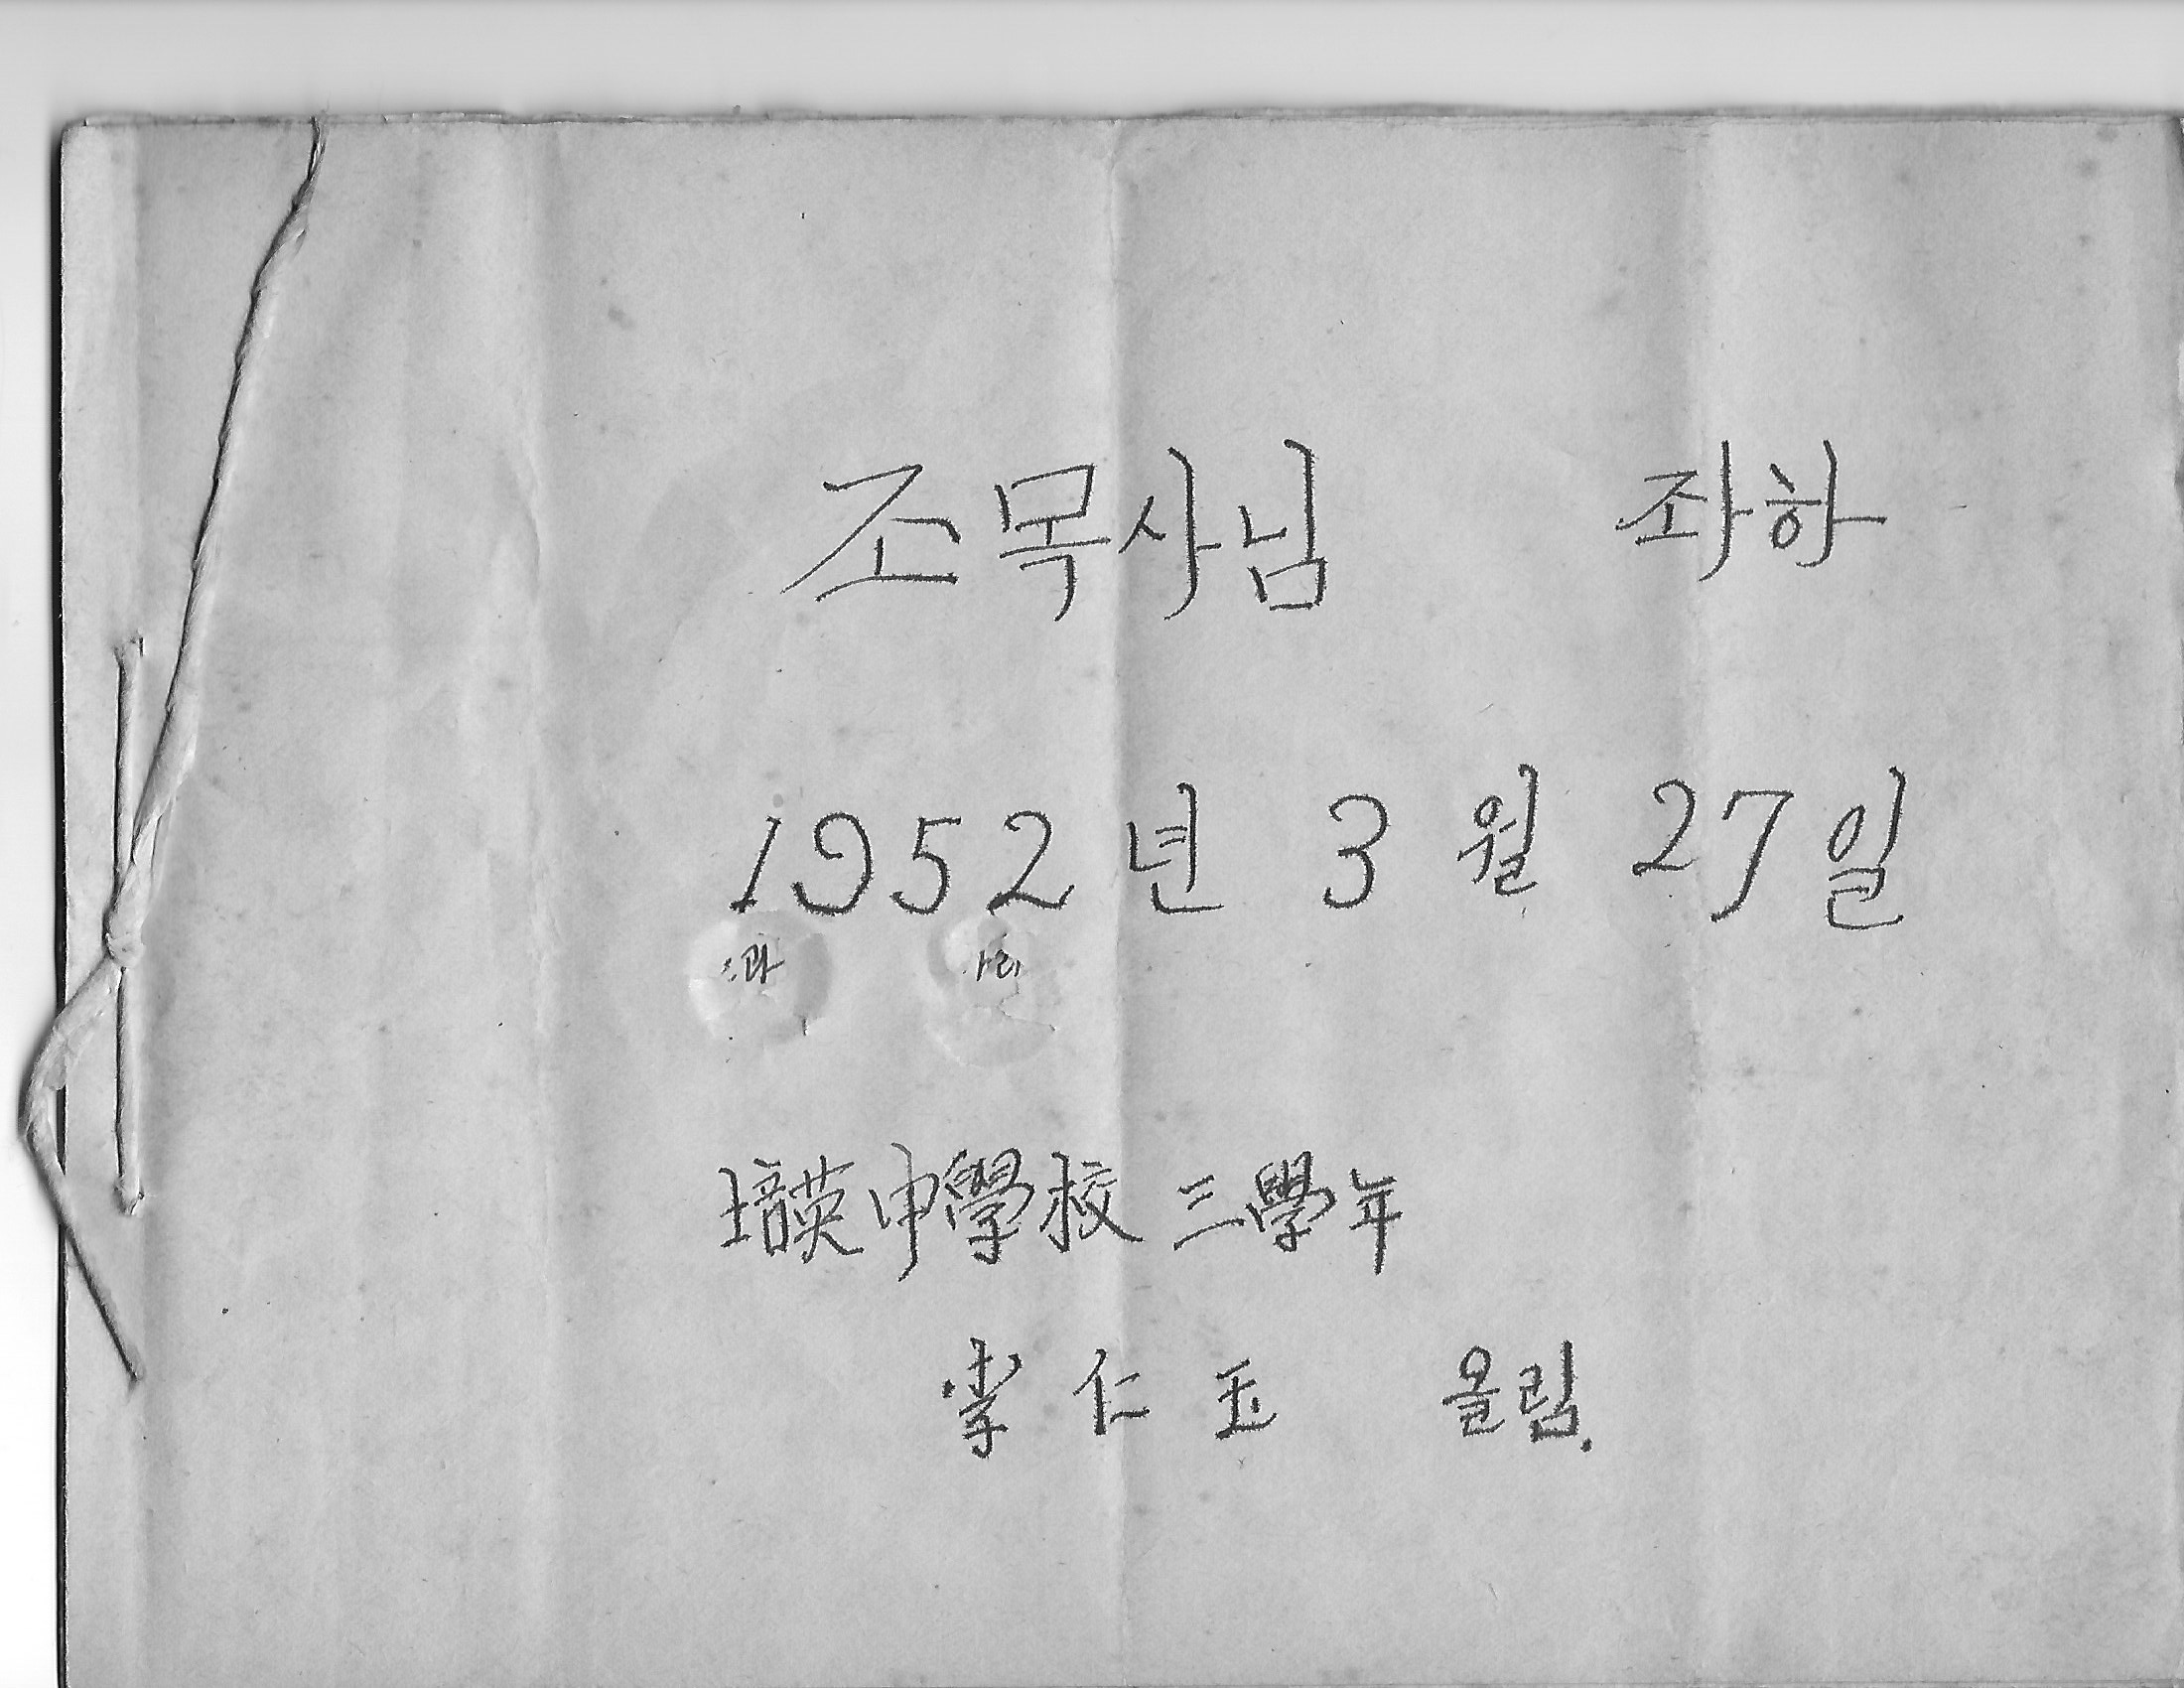 조목사님 좌하
1952년 3월 27일
培英中學校 三學年
李仁玉 올림.